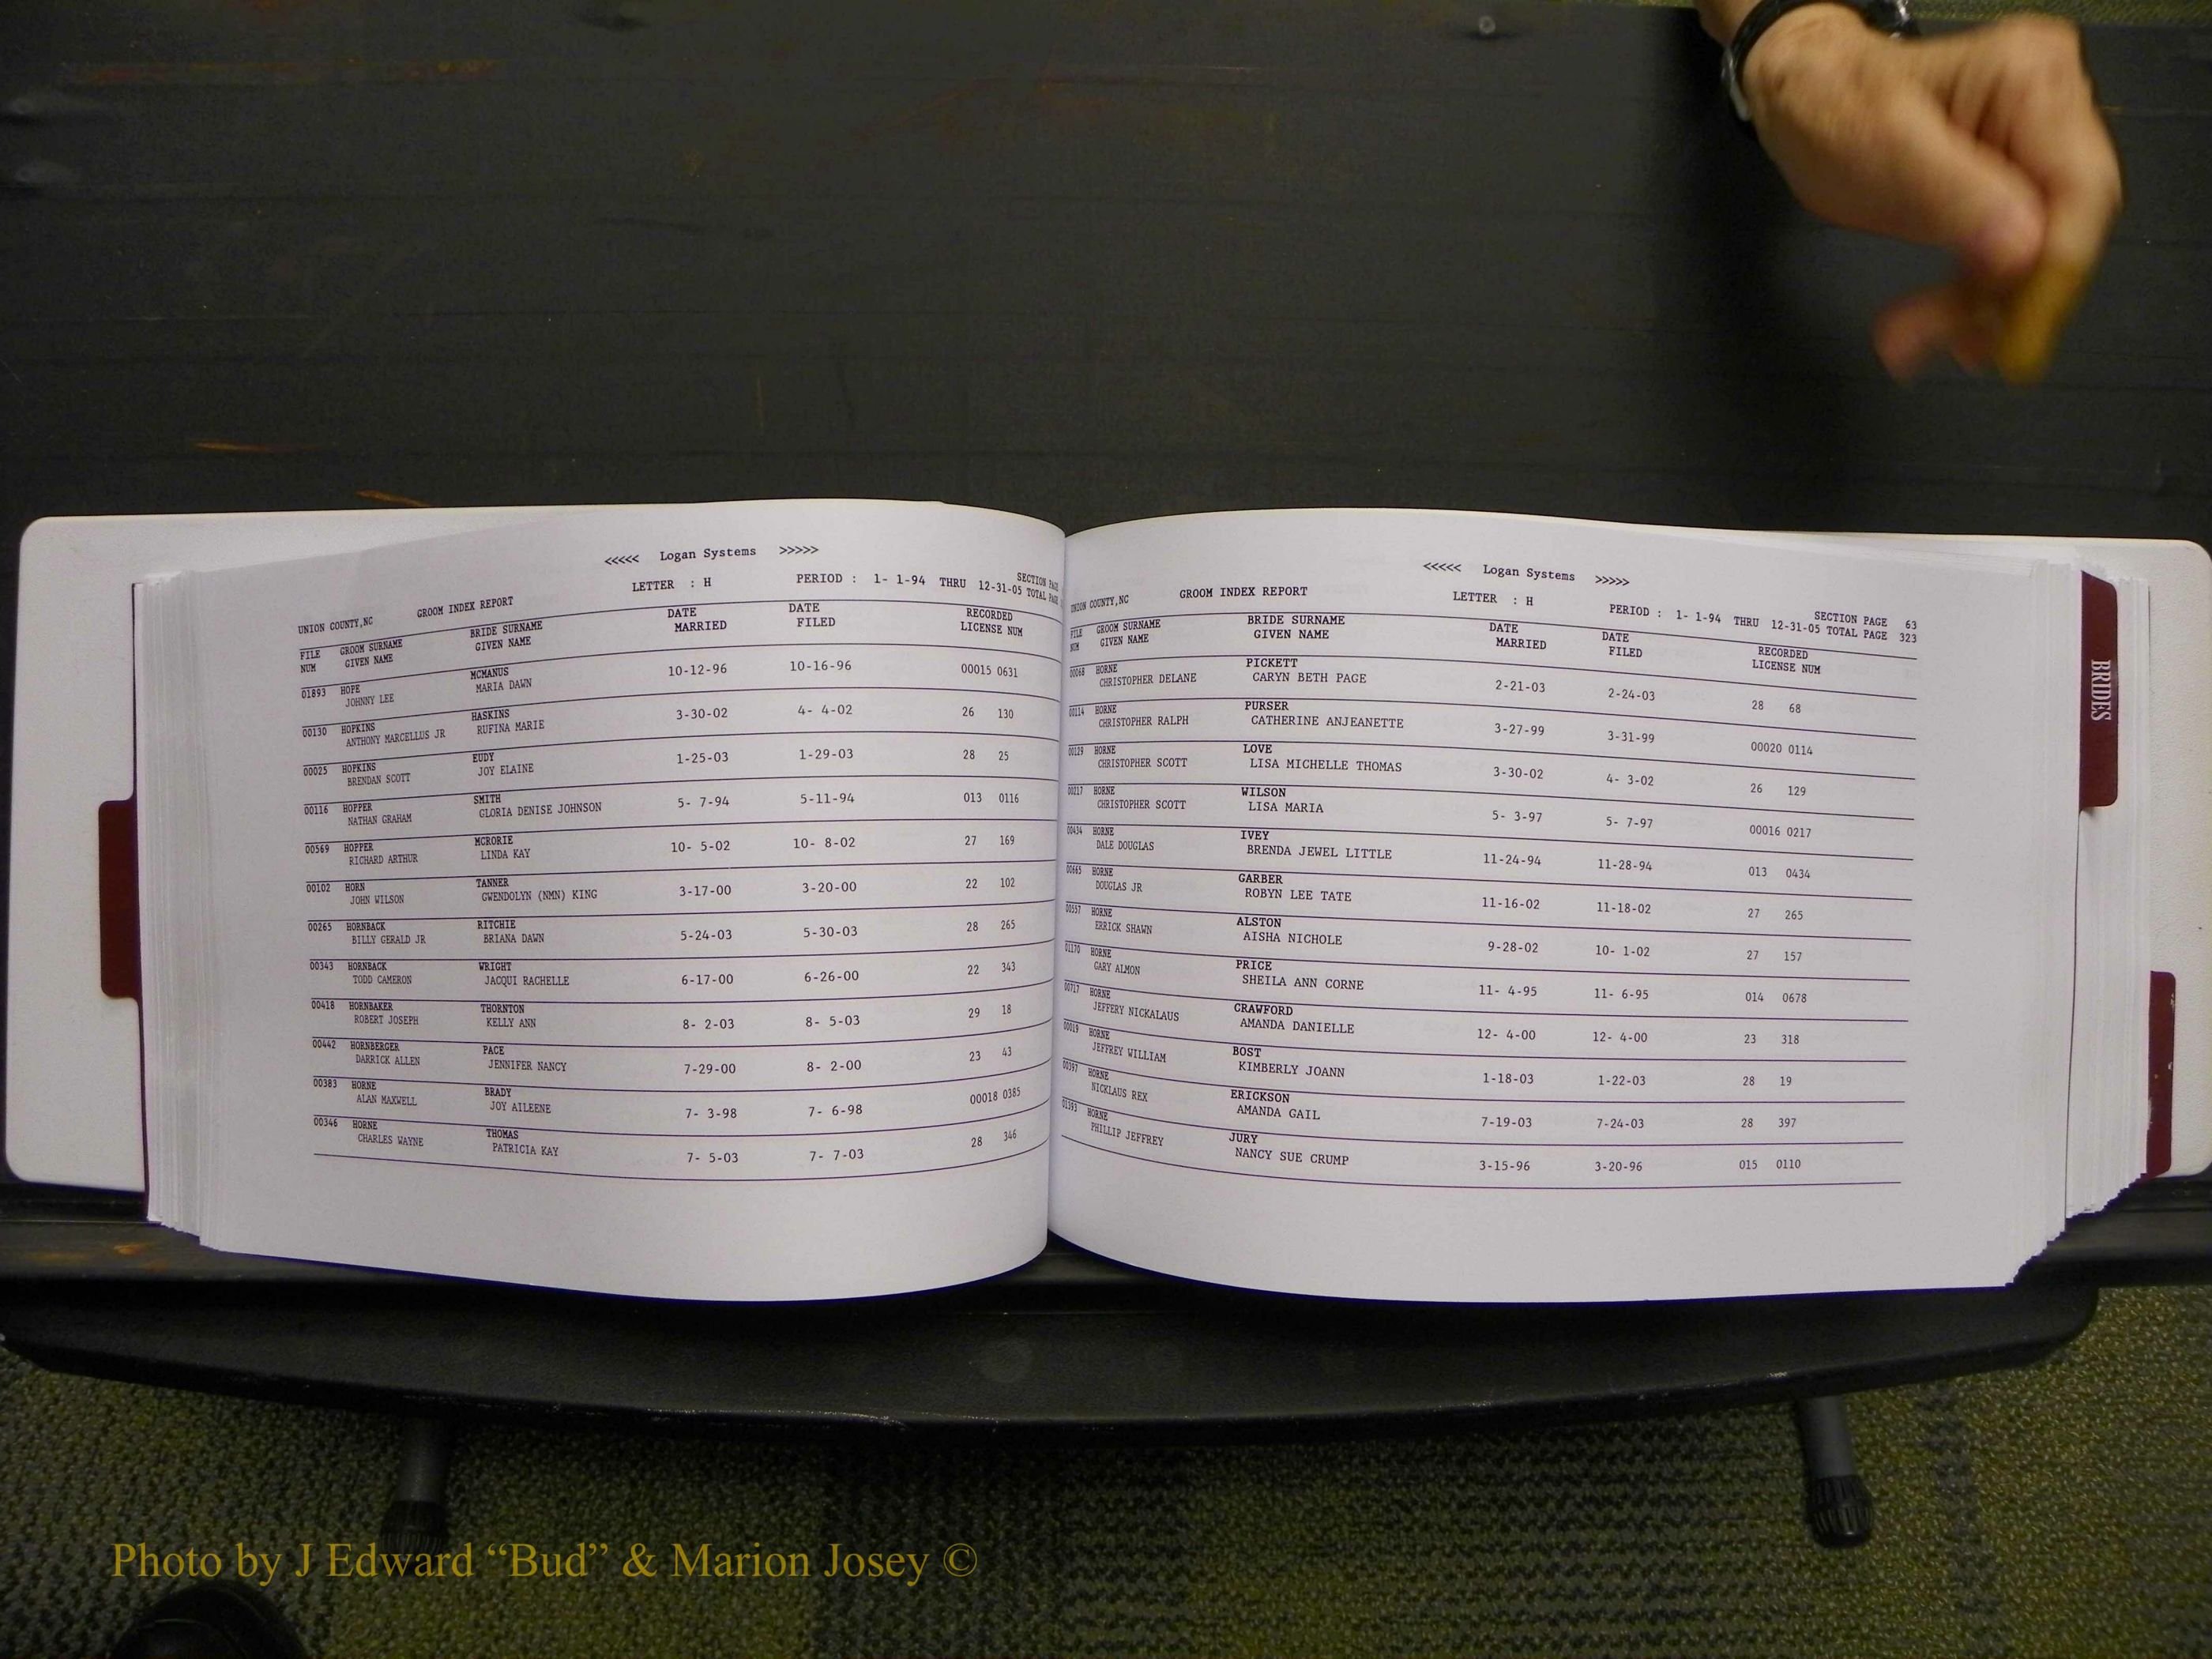 <<<<< Logan Systems >>>>>
UNION COUNTY,NC GROOM INDEX REPORT LETTER : H PERIOD : 1- 1-94 THRU 12-31-05 SECTION PAGE
TOTAL PAGE
FILE GROOM SURNAME BRIDE SURNAME DATE DATE RECORDED
NUM GIVEN NAME GIVEN NAME MARRIED FILED LICENSE NUM
01893 HOPE MCMANUS 10-12-96 10-16-96 00015 0631
JOHNNY LEE MARIA DAWN
00130 HOPKINS HASKINS 3-30-02 4- 4-02 26 130
ANTHONY MARCELLUS JR RUFINA MARIE
00025 HOPKINS EUDY 1-25-03 1-29-03 28 25
BRENDAN SCOTT JOY ELAINE
00116 HOPPER SMITH 5- 7-94 5-11-94 013 0116
NATHAN GRAHAM GLORIA DENISE JOHNSON
00569 HOPPER MCRORIE 10- 5-02 10- 8-02 27 169
RICHARD ARTHUR LINDA KAY
00102 HORN TANNER 3-17-00 3-20-00 22 102
JOHN WILSON GWENDOLYN (NMN) KING
00265 HORNBACK RITCHIE 5-24-03 5-30-03 28 265
BILLY GERALD JR BRIANA DAWN
00343 HORNBACK WRIGHT 6-17-00 6-26-00 22 343
TODD CAMERON JACQUI RACHELLE
00418 HORNBAKER THORNTON 8- 2-03 8- 5-03 29 18
ROBERT JOSEPH KELLY ANN
00442 HORNBERGER PACE 7-29-00 8- 2-00 23 43
DARRICK ALLEN JENNIFER NANCY
00383 HORNE BRADY 7- 3-98 7- 6-98 00018 0385
ALAN MAXWELL JOY AILEENE
00346 HORNE THOMAS 7- 5-03 7- 7-03 28 346
CHARLES WAYNE PATRICIA KAY
<<<<< Logan Systems >>>>>
UNION COUNTY,NC GROOM INDEX REPORT LETTER : H PERIOD : 1- 1-94 THRU 12-31-05 SECTION PAGE 63
TOTAL PAGE 323
FILE GROOM SURNAME BRIDE SURNAME DATE DATE RECORDED
NUM GIVEN NAME GIVEN NAME MARRIED FILED LICENSE NUM
00068 HORNE PICKETT 2-21-03 2-24-03 28 68
CHRISTOPHER DELANE CARYN BETH PAGE
00114 HORNE PURSER 3-27-99 3-31-99 00020 0114
CHRISTOPHER RALPH CATHERINE ANJEANETTE
00129 HORNE LOVE 3-30-02 4- 3-02 26 129
CHRISTOPHER SCOTT LISA MICHELLE THOMAS
00217 HORNE WILSON 5- 3-97 5- 7-97 00016 0217
CHRISTOPHER SCOTT LISA MARIA
00434 HORNE IVEY 11-24-94 11-28-94 013 0434
DALE DOUGLAS BRENDA JEWEL LITTLE
00665 HORNE GARBER 11-16-02 11-18-02 27 265
DOUGLAS JR ROBYN LEE TATE
00557 HORNE ALSTON 9-28-02 10- 1-02 27 157
ERRICK SHAWN AISHA NICHOLE
01170 HORNE PRICE 11- 4-95 11- 6-95 014 0678
GARY ALMON SHEILA ANN CORNE
00717 HORNE CRAWFORD 12- 4-00 12- 4-00 23 318
JEFFERY NICKALAUS AMANDA DANIELLE
00019 HORNE BOST 1-18-03 1-22-03 28 19
JEFFREY WILLIAM KIMBERLY JOANN
00397 HORNE ERICKSON 7-19-03 7-24-03 28 397
NICKLAUS REX AMANDA GAIL
01393 HORNE JURY 3-15-96 3-20-96 015 0110
PHILLIP JEFFREY NANCY SUE CRUMP
BRIDES
Photo by J Edward “Bud” & Marion Josey ©